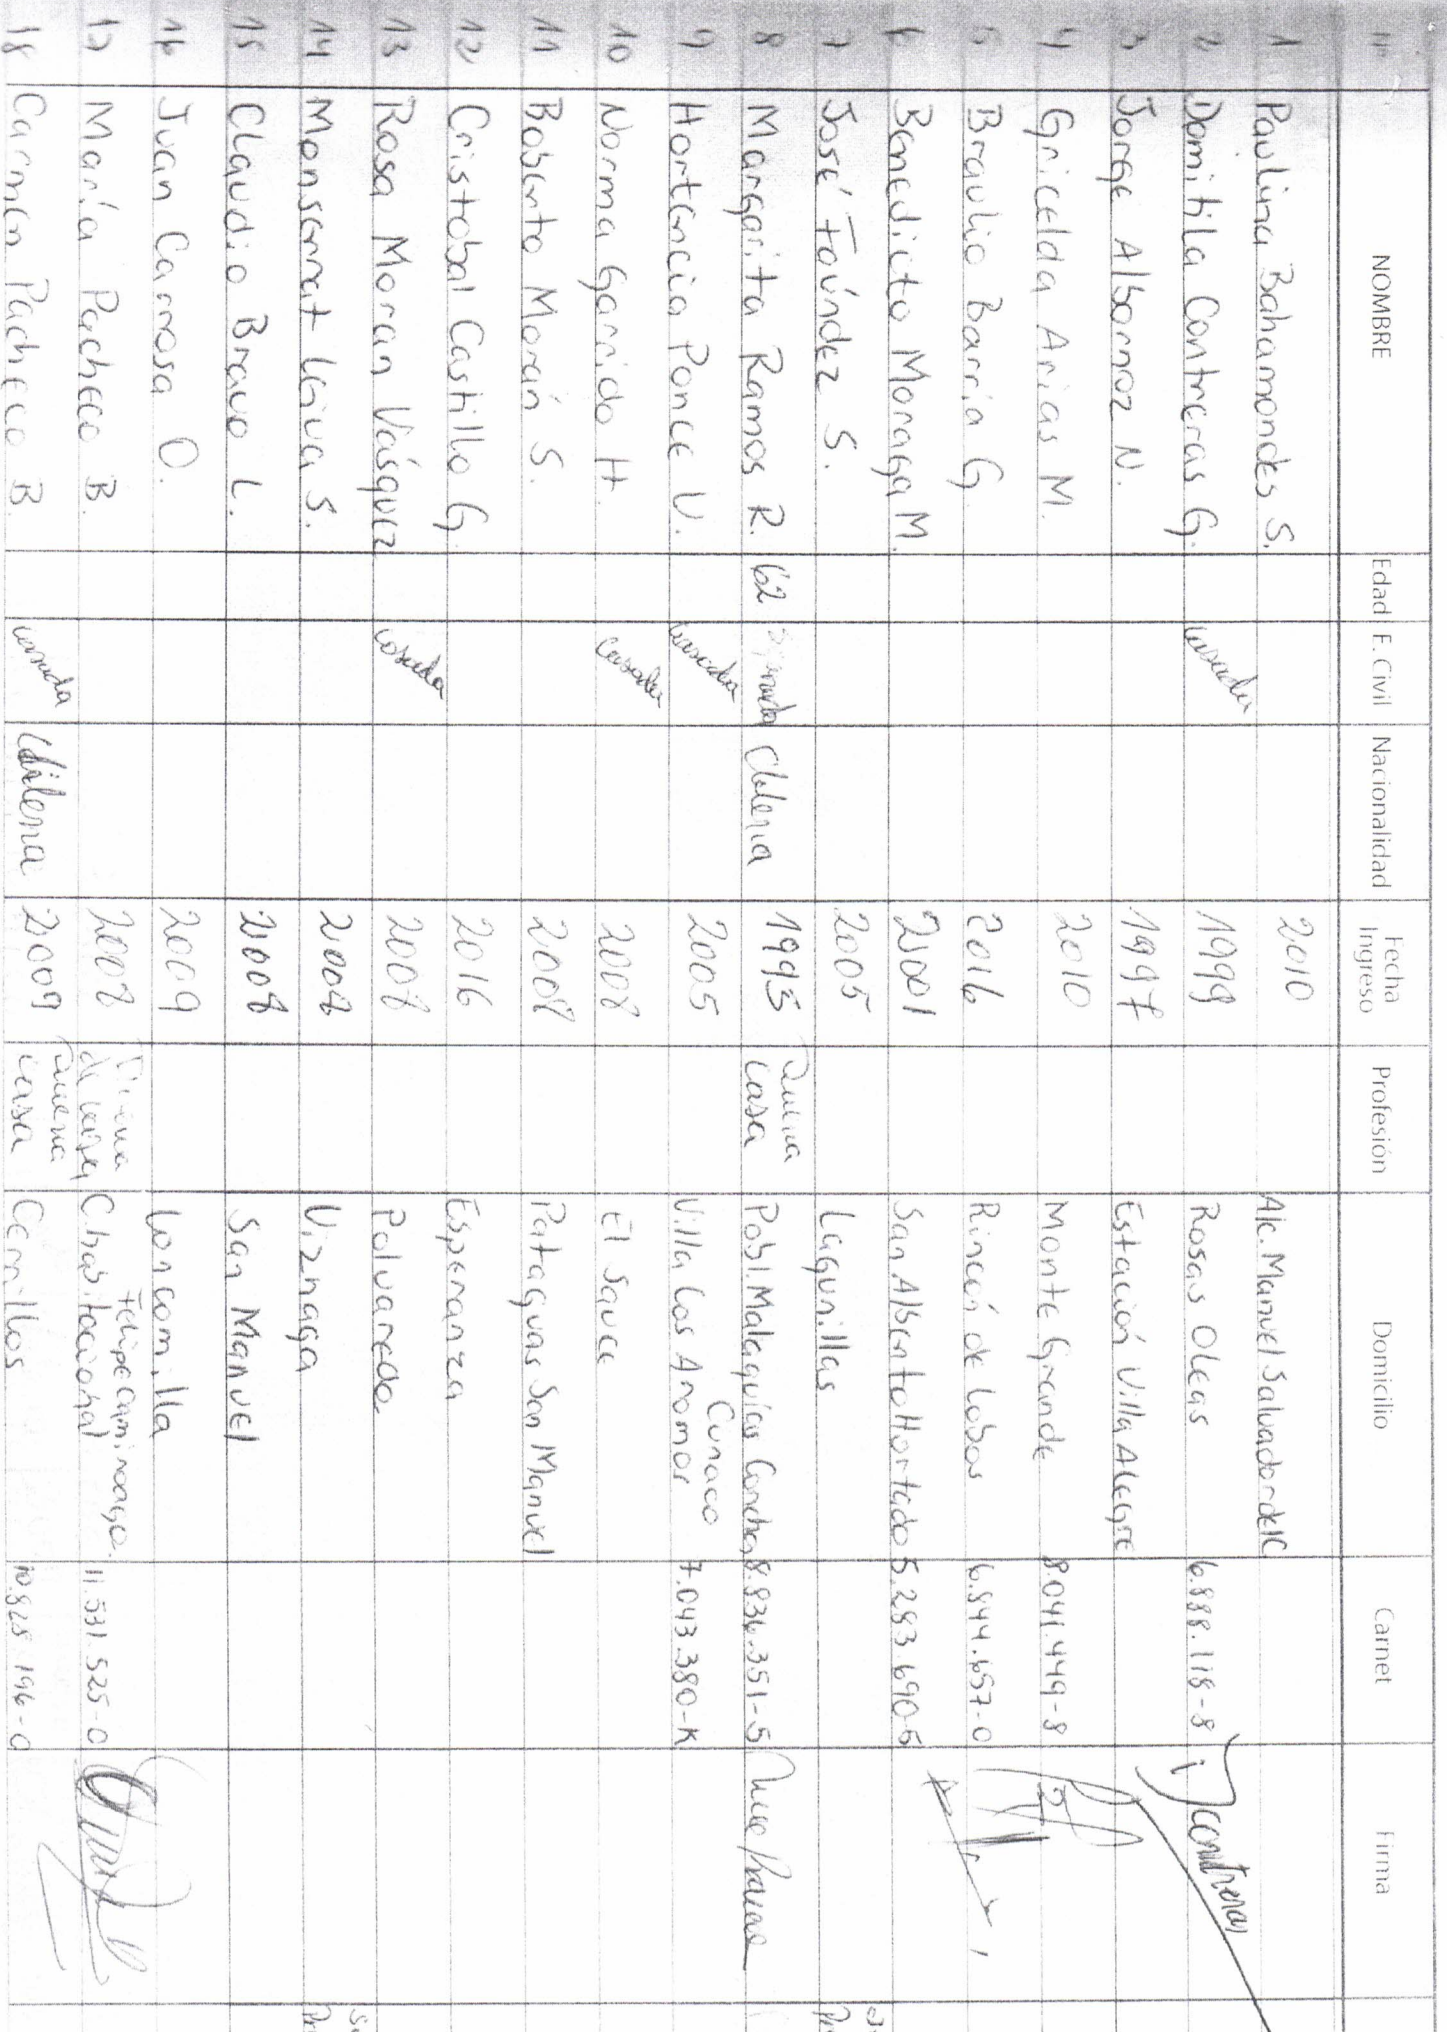 Nº NOMBRE Edad E. Civil Nacionalidad Fecha Ingreso Profesión Domicilio Carnet Firma
1 Paulina Bahamondes S. 2010 Alc. Manuel Salvador del C
2 Domitila Contreras G. casada 1999 Rosas Oleas 6.888.118-8 Dcontreras
3 Jorge Albornoz N. 1997 Estación Villa Alegre
4 Gricelda Arias M. 2010 Monte Grande 8.041.449-8
5 Braulio Barría G. 2016 Rincón de Lobos 6.844.657-0
6 Benedicto Moraga M. 2001 San Alberto Hortado 5.283.690-5
7 José Faúndez S. 2005 Lagunillas
8 Margarita Ramos R. 62 Separada Chilena 1995 Dueña casa Pobl. Malaquías Concha 8.836.351-5
9 Hortencia Ponce V. casada 2005 Villa Los Aromos Cunaco 7.043.380-K
10 Norma Garrido H. casada 2008 El Sauce
11 Roberto Morán S. 2008 Pataguas San Manuel
12 Cristobal Castillo G. 2016 Esperanza
13 Rosa Moran Vásquez casada 2008 Polvareda
14 Monserrat Leiva S. 2008 Viznaga
15 Claudio Bravo L. 2008 San Manuel
16 Juan Carrosa O. 2009 Loncomilla
17 María Pacheco B. 2008 Dueña de casa C. habitacional Felipe Camiroaga. 11.531.525-0
18 Carmen Pacheco B casada Chilena 2009 Dueña casa Cerrillos 10.828.196-0